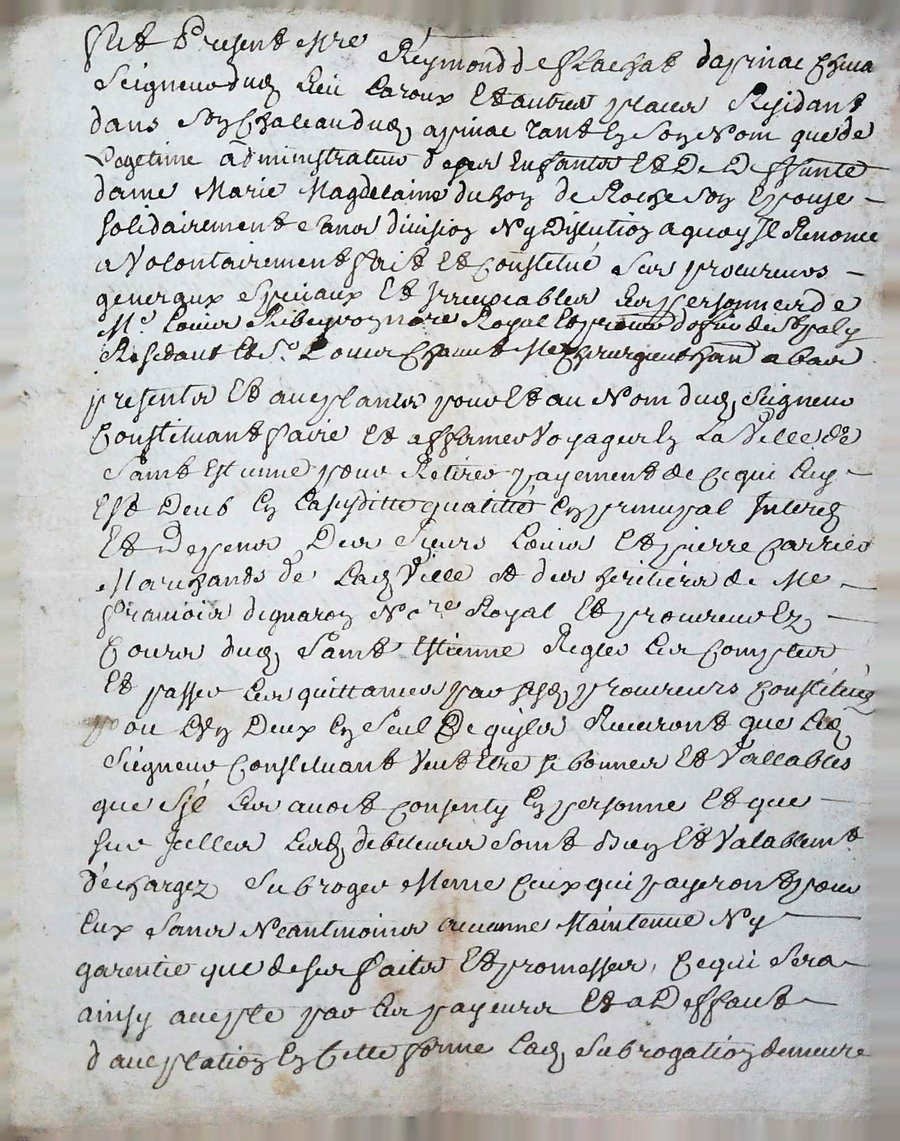 fut Present Mre Reymond de flachat dapinac
Seigneur dud. Lieu Laroux Et autres places Residant
dans Son Chateau dud. apinac tant En Son Nom que de
Legetime administrateur de ses Enfants Et De Deffunte
dame Marie Magdelaine de Roche Son Epouse
Solidairement sans division Ny Discution a quoy Il Renonce
a Volontairement fait Et Constitué Ses procureurs
generaux speciaux Et Irrevocables Les personnes de
Me Louis Ribeyron nore Royal Et doffice de St paly
Residant Et Sr Louis a bas
presents Et aceptants pour Et au Nom dud. Seigneur
Constituant faire Et affirmer Voyage En La Ville de
Saint Estienne pour Retirer payement de Ce qui Luy
Est Deub En Lasusditte qualitté En principal Interes
Et Depens Des Sieurs Louis Et pierre Carrier
Marchands de Lad. Ville et des heritiers de Me
francois dignaron Nore Royal Et procureur Ez
Cours dud. Saint Estienne Regler Les Comptes
Et passer Les quittances par sesd. procureurs Constitués
ou Des Deux En Seul De quils Recevront que Led.
Seigneur Constituant Veut Etre Si bonnes Et Vallables
que Sil Les avoit Consenty En personne Et que
sur Icelles Lesd. debiteurs Sont Bien Et Valablemt
dechargez Subroger Meme Ceux qui payeront pour
Eux Sans Neantmoins aucunne Maintenue Ny
garentie que de ses faits Et promesses, Ce qui Sera
ainsy acepté par Les payeurs Et a Deffaut
daceptation En Cette forme Lad. Subrogation demeure